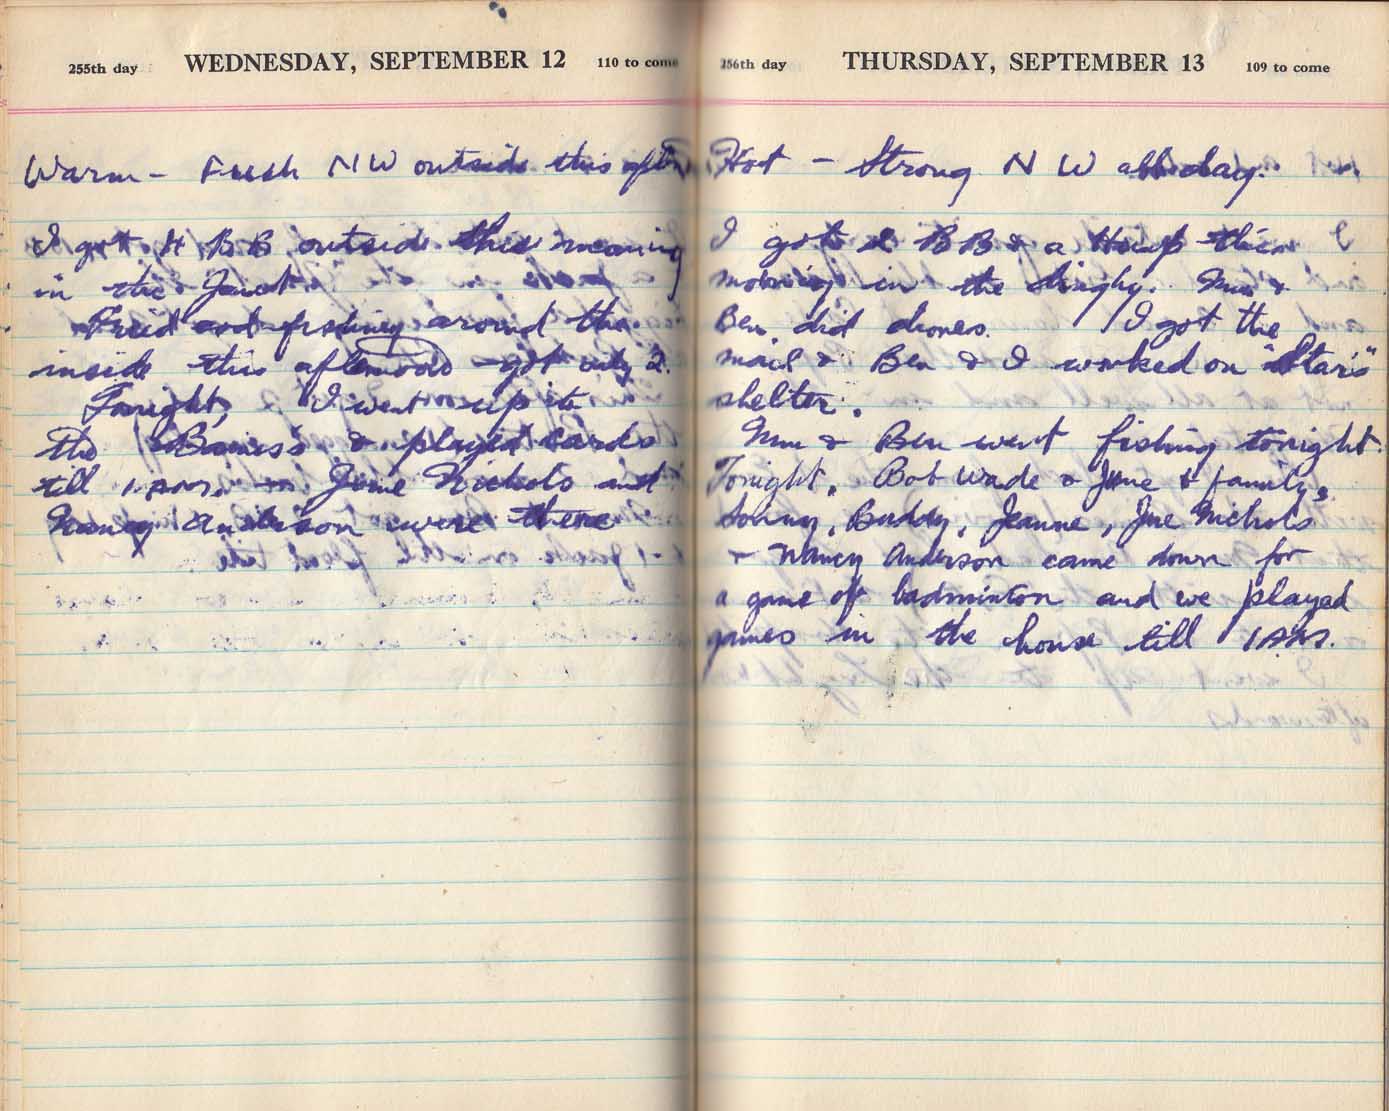 255th day WEDNESDAY, SEPTEMBER 12 110 to come
Warm – Fresh NW outside this aftn
I got 4 BB outside this morning
in the Jewel
Fried and fishing around the
inside this afternoon – got only 2.
Tonight, I went up to
the & played cards
till 1 AM. – June Nichols and
Nancy Anderson were there
256th day THURSDAY, SEPTEMBER 13 109 to come
Hot – Strong NW all day.
I got 2 BB & a this
morning in the dinghy. Mum &
Ben did chores. I got the
mail & Ben & I worked on "Star's"
shelter.
Mum & Ben went fishing tonight.
Tonight, Bob Wade & June & family,
Sonny, Buddy, Jeanne, June Nichols
& Nancy Anderson came down for
a game of badminton and we played
games in the house till 1 AM.